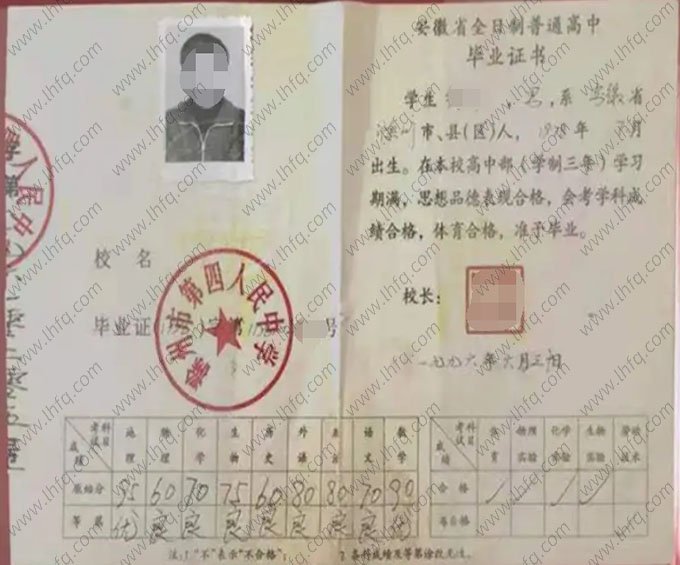 安徽省全日制普通高中
毕业证书
学生 , 男, 系 安徽省
滁州市、县(区)人, 1978年 月
出生。在本校高中部(学制三年)学习
期满, 思想品德表现合格, 会考学科成
绩合格, 体育合格, 准予毕业。
校长:
一九九六年六月
校 名
滁州市第四人民中学
毕业证 字第 号
科目 考试 成绩 地理 物理 化学 生物 历史 外语 政治 语文 数学
原始分 95 60 70 75 60 80 80 70 90
等第 优 良 良 良 良 良 良 良 优
科目 考试 成绩 体育 物理实验 化学实验 生物实验 劳动技术
合格
不合格
注:1."不"表示"不合格";
2.各科成绩及等第涂改无效。
www.lhfq.com